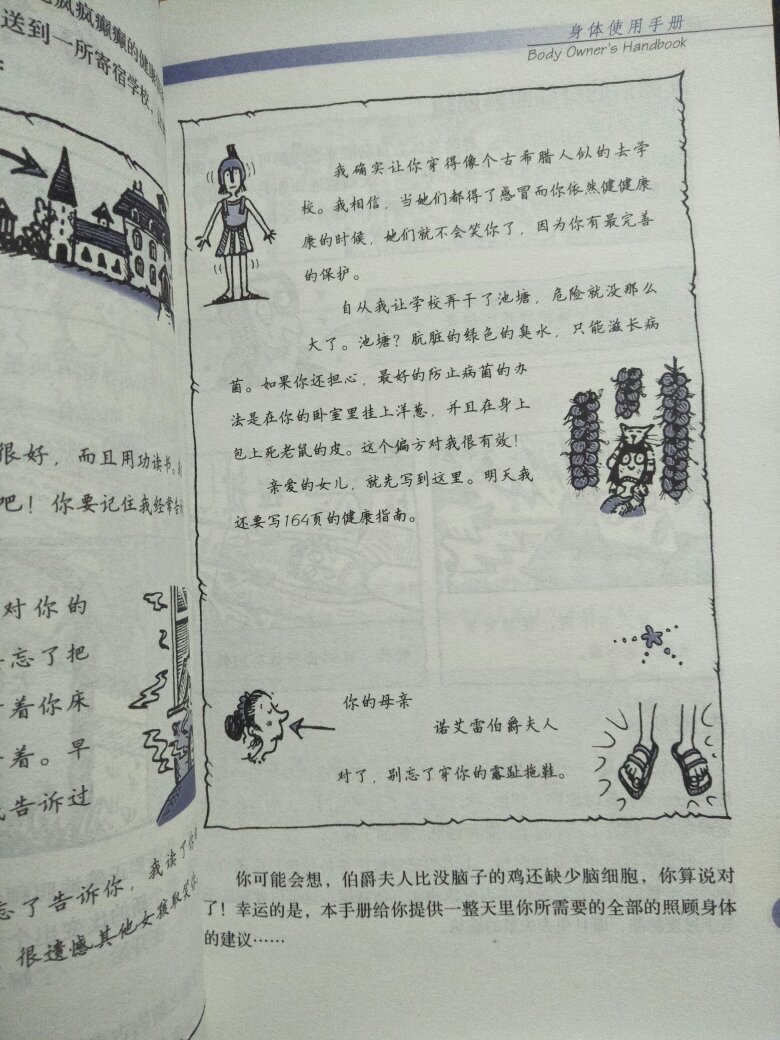 疯疯癫癫的健康
送到一所寄宿学校。
很好，而且用功读书。
吧！你要记住我经常告
对你的
忘了把
着你床
着。早
告诉过
忘了告诉你，我读了
很遗憾其他女孩取笑你
身体使用手册
Body Owner's Handbook
我确实让你穿得像个古希腊人似的去学
校。我相信，当她们都得了感冒而你依然健健康
康的时候，她们就不会笑你了，因为你有最完善
的保护。
自从我让学校弄干了池塘，危险就没那么
大了。池塘？肮脏的绿色的臭水，只能滋长病
菌。如果你还担心，最好的防止病菌的办
法是在你的卧室里挂上洋葱，并且在身上
包上死老鼠的皮。这个偏方对我很有效！
亲爱的女儿，就先写到这里。明天我
还要写164页的健康指南。
你的母亲
诺艾雷伯爵夫人
对了，别忘了穿你的露趾拖鞋。
你可能会想，伯爵夫人比没脑子的鸡还缺少脑细胞，你算说对
了！幸运的是，本手册给你提供一整天里你所需要的全部的照顾身体
的建议……